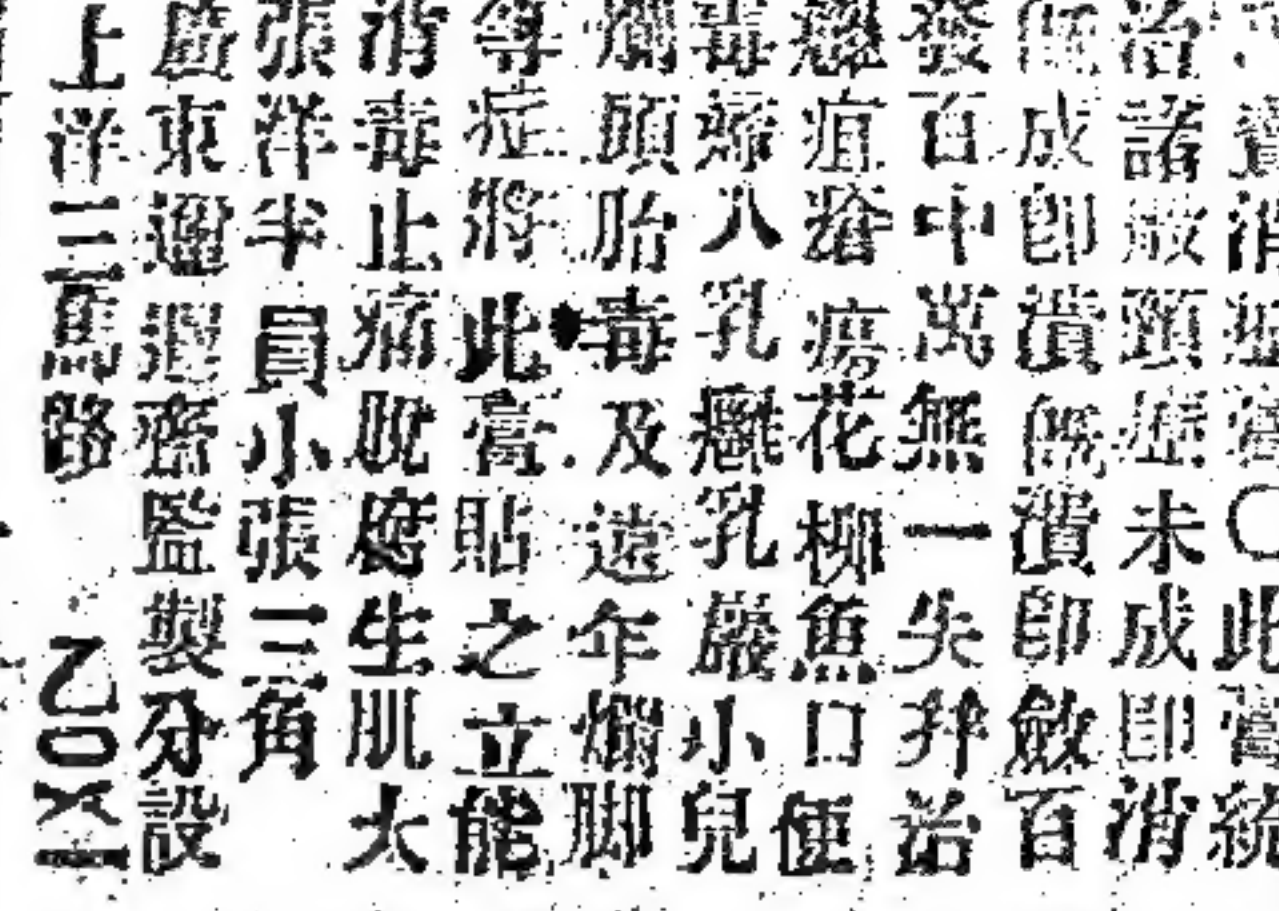 消膏〇此膏統
治諸頸症未成即消
既成即潰既潰即斂百
發百中萬無一失幷治
癰疽瘡瘍花柳魚口便
毒八乳癰乳巖小兒
爛頭胎毒及遠年爛脚
等症將此膏貼之立能
消毒止痛脫腐生肌大
張洋半員小張三角
廣東邇遐齋監製分設
上洋三馬路　乙〇〤一